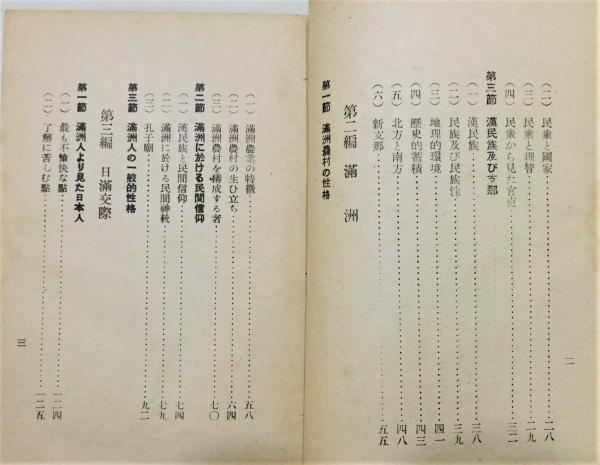 (二) 民衆と國家……二八
(三) 民衆と理智……二九
(四) 民衆から見た官吏……三二
第三節 漢民族及び支那
(一) 漢民族……三八
(二) 民族及び民族性……三九
(三) 地理的環境……四一
(四) 歷史的蓄積……四三
(五) 北方と南方……四八
(六) 新支那……五五
第二編 滿洲
第一節 滿洲農村の性格
二
(一) 滿洲農業の特徵……五八
(二) 滿洲農村の生ひ立ち……六四
(三) 滿洲農村を構成する者……七〇
第二節 滿洲に於ける民間信仰
(一) 漢民族と民間信仰……七四
(二) 滿洲に於ける民間神統……七九
(三) 孔子廟……九二
第三節 滿洲人の一般的性格
第三編 日滿交際
第一節 滿洲人より見た日本人
(一) 最も不愉快な點……一二四
(二) 了解に苦しむ點……一二五
三